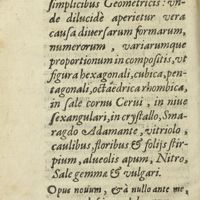 simplicibus Geometricis: vn-
de dilucidè aperietur vera
causa diuersarum formarum,
numerorum, variarumque
proportionum in compositis, vt
figura hexagonali, cubica, pen-
tagonali, octaëdrica rhombica,
in sale cornu Cerui, in niue
sexangulari, in crystallo, Sma-
ragdo Adamante, vitriolo,
caulibus floribus & folijs stir-
pium, alueolis apum, Nitro,
Sale gemmæ & vulgari.
Opus nouum, & à nullo ante me,